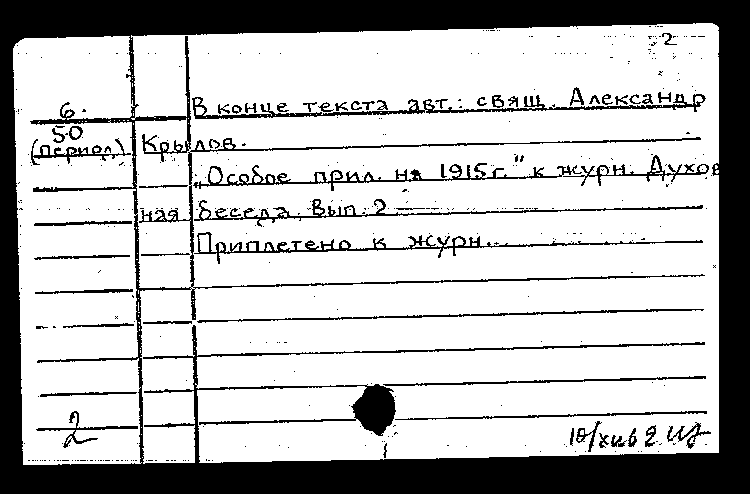 2
6. В конце текста авт.: свящ. Александр
50
(период) Крылов.
„Особое прил. на 1915 г." к журн. Духов
ная беседа, Вып. 2
Приплетено к журн...
2